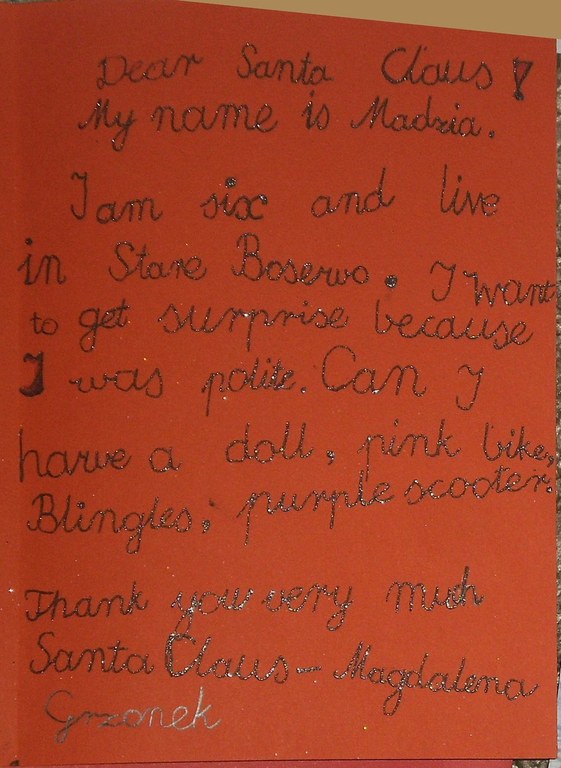 Dear Santa Claus!
My name is Madzia.
I am six and live
in Stare Boserwo. I want
to get surprise because
I was polite. Can I
harve a doll, pink bike,
Blingles, purple scooter.
Thank you very much
Santa Claus - Magdalena
Grzonek